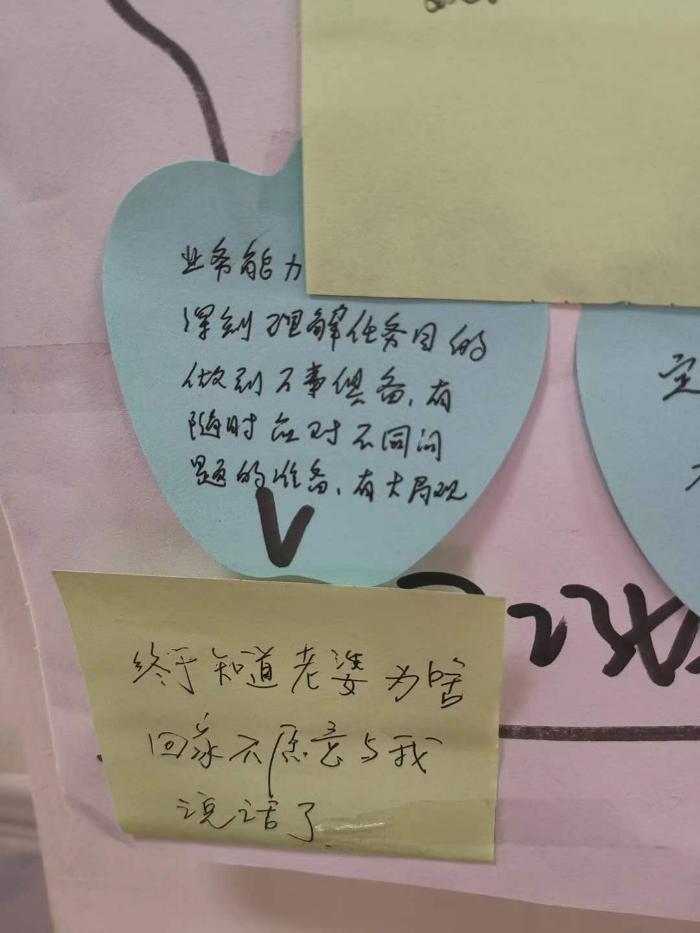 业务能力
深刻理解任务目的
做到万事俱备,有
随时应对不同问
题的准备,有大局观
定
终于知道老婆为啥
回家不愿意与我
说话了